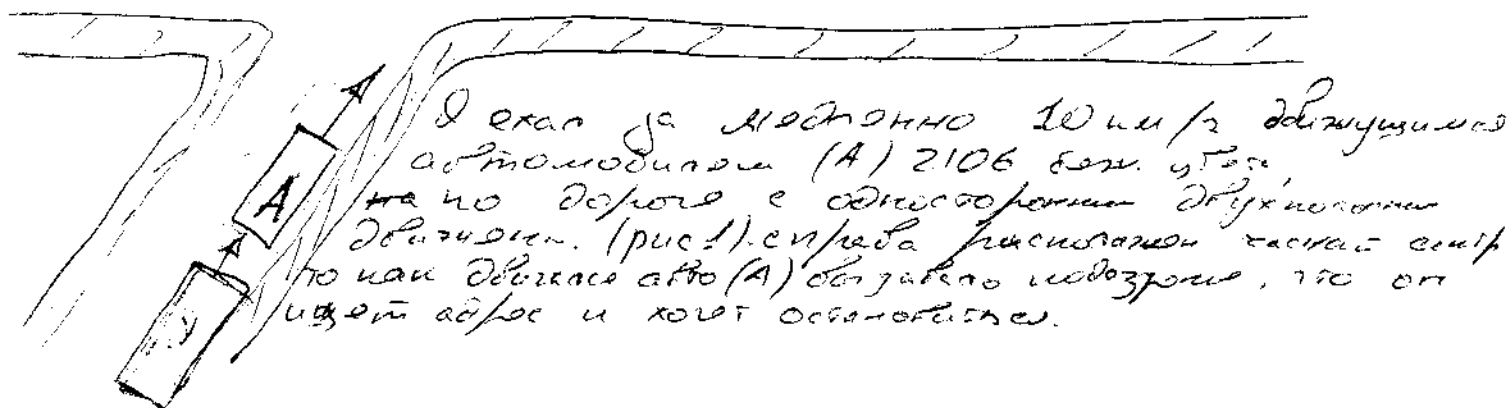 Я ехал за медленно 10 км/г движущимся
автомобилем (А) 2106 беж. цвета,
по дороге с односторонним двухполосным
движением. (рис 1). справа расположен
то как двигался авто (А) вызывало подозрение, что он
ищет адрес и хочет остановиться.
А